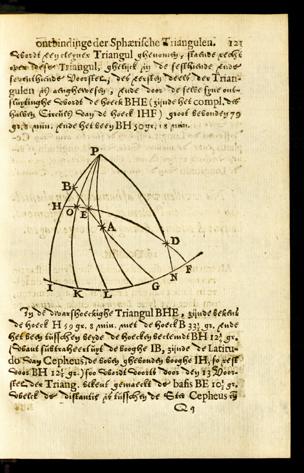 ontbindinge der Sphærische Triangulen. 121
wordt een clener Triangul ghenomen, staende recht
over desen Triangul, ghelijck in de sesthiende ende
seventhiende Voorstel, des eersten deels der Trian-
gulen is aenghewesen, ende door de selve syne ont-
sluytinghe wordt de hoeck BHE (sijnde het compl. des
halven Circkels van de hoeck IHF) groot bevonden 79
gr. 8 min. ende het been BH 50 gr. 18 min.
P
B
H O E
A
D
I K L G N F
In de dwarshoeckighe Triangul BHE, zijnde bekent
de hoeck H 59 gr. 8 min. met de hoeck B 33½ gr. ende
het been tusschen beyde de hoecken bestemt BH 12½ gr.
(want subtraheert uyt de booghe IB, zijnde de Latitu-
do van Cepheus, de boven ghevonden booghe IH, so rest
voor BH 12½ gr.) soo wordt voorts door den 13 Voor-
stel der Triang. bekent gemaeckt de basis BE 10½ gr.
welck de distantie is tusschen de Ster Cepheus en
Q